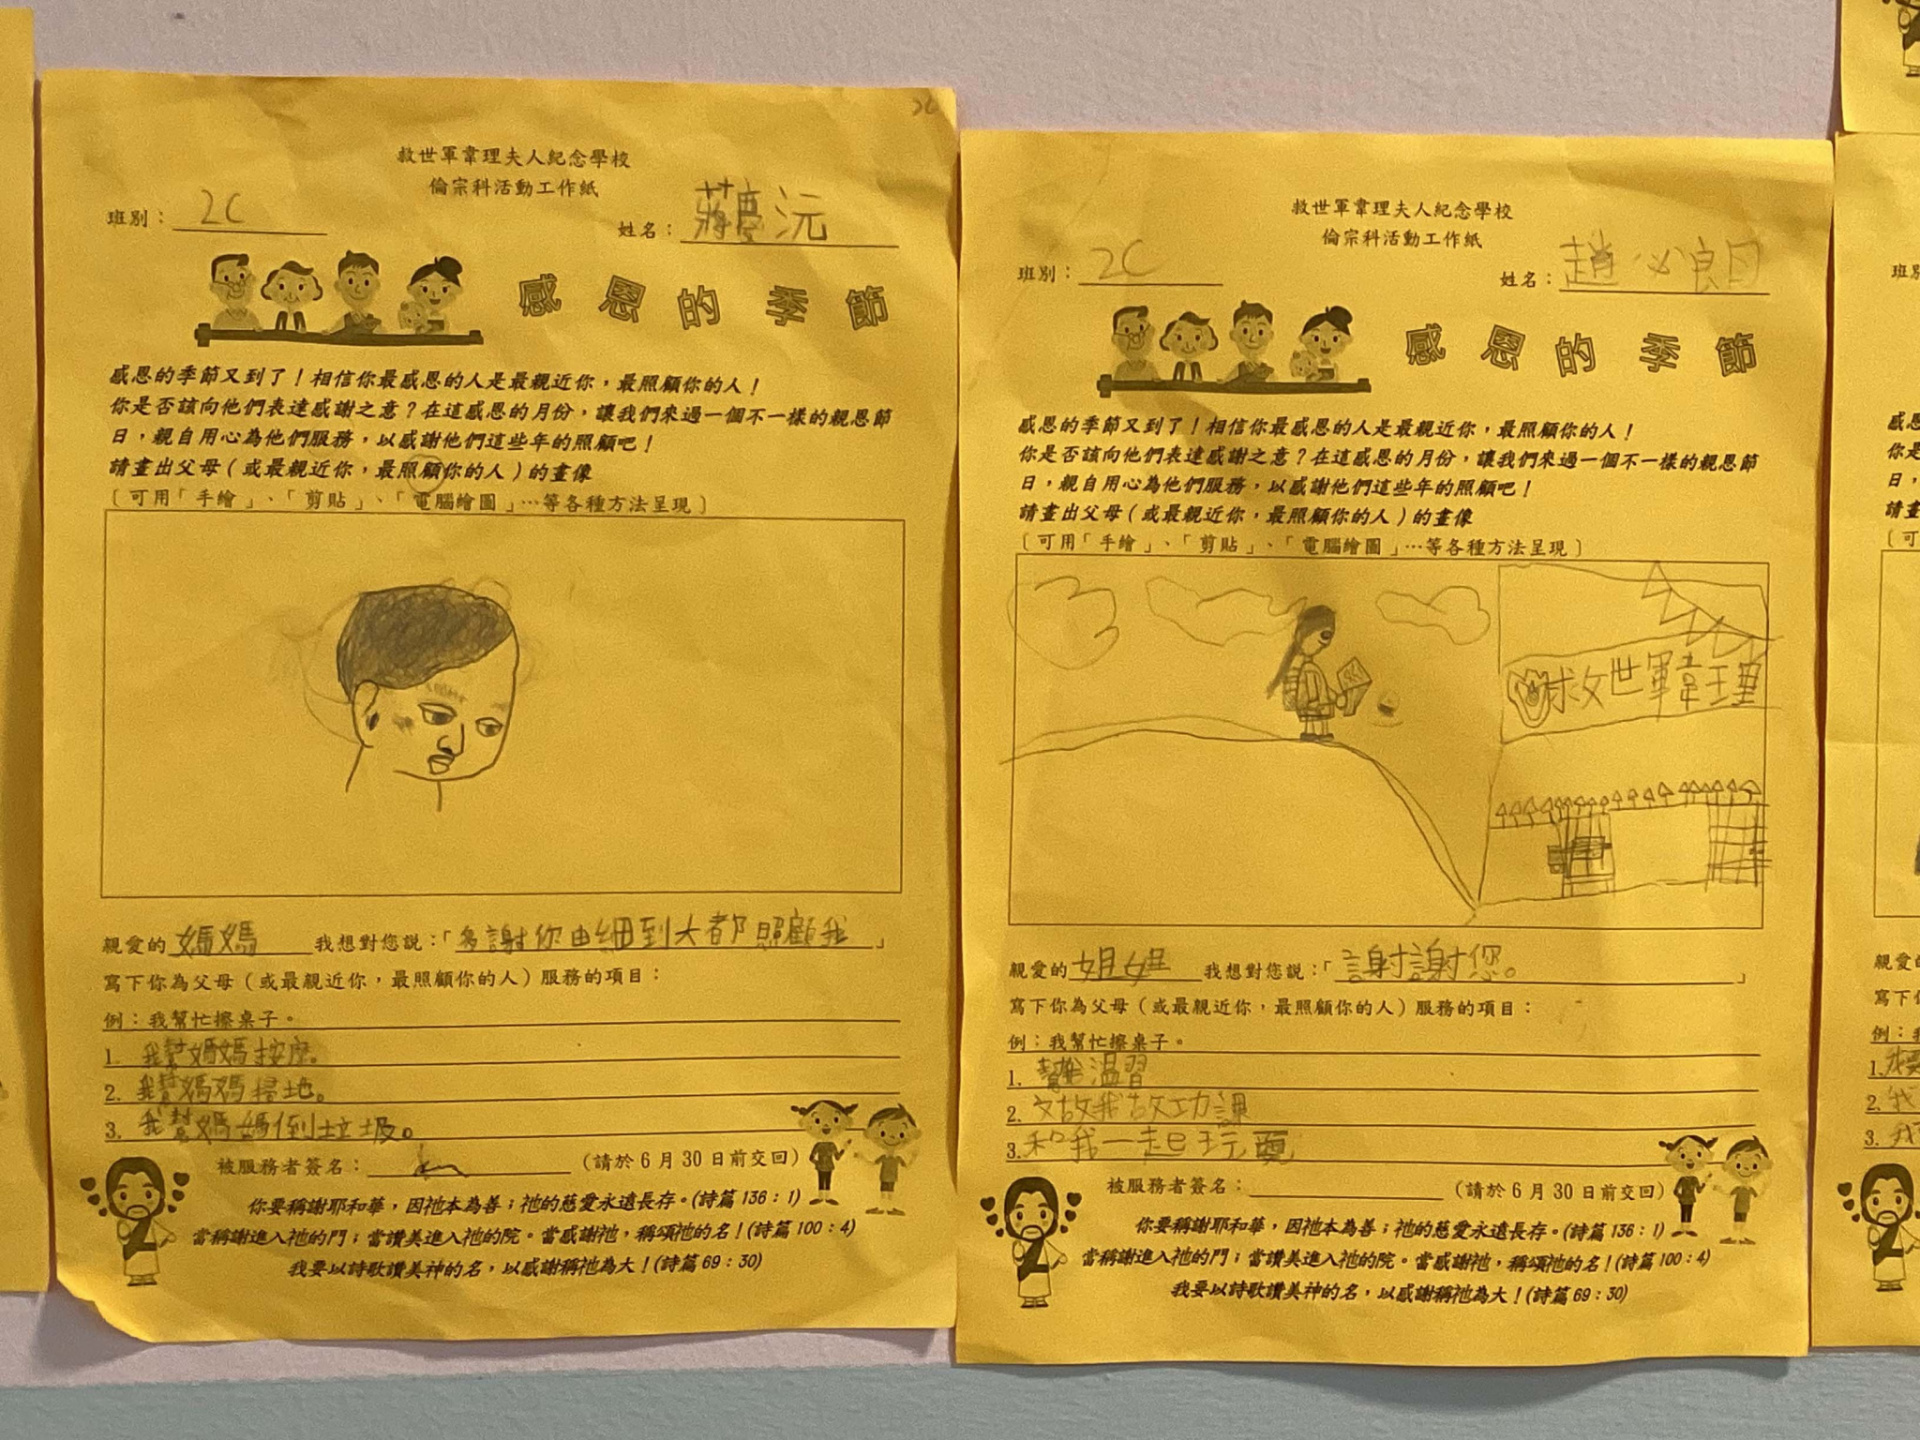 2C
救世軍韋理夫人紀念學校
倫宗科活動工作紙
班別：2C
姓名：蔣慶沅
感恩的季節
感恩的季節又到了！相信你最感恩的人是最親近你，最照顧你的人！
你是否該向他們表達感謝之意？在這感恩的月份，讓我們來過一個不一樣的親恩節
日，親自用心為他們服務，以感謝他們這些年的照顧吧！
請畫出父母（或最親近你，最照顧你的人）的畫像
〔可用「手繪」、「剪貼」、「電腦繪圖」…等各種方法呈現〕
親愛的媽媽 我想對您説：「多謝你由細到大都照顧我」
寫下你為父母（或最親近你，最照顧你的人）服務的項目：
例：我幫忙擦桌子。
1. 我幫媽媽按摩。
2. 我幫媽媽掃地。
3. 我幫媽媽倒垃圾。
被服務者簽名： （請於6月30日前交回）
你要稱謝耶和華，因祂本為善；祂的慈愛永遠長存。(詩篇136：1)
當稱謝進入祂的門；當讚美進入祂的院。當感謝祂，稱頌祂的名！(詩篇100：4)
我要以詩歌讚美神的名，以感謝稱祂為大！(詩篇69：30)
救世軍韋理夫人紀念學校
倫宗科活動工作紙
班別：2C
姓名：趙
感恩的季節
感恩的季節又到了！相信你最感恩的人是最親近你，最照顧你的人！
你是否該向他們表達感謝之意？在這感恩的月份，讓我們來過一個不一樣的親恩節
日，親自用心為他們服務，以感謝他們這些年的照顧吧！
請畫出父母（或最親近你，最照顧你的人）的畫像
〔可用「手繪」、「剪貼」、「電腦繪圖」…等各種方法呈現〕
救世軍韋理
親愛的姐姐 我想對您説：「謝謝您。」
寫下你為父母（或最親近你，最照顧你的人）服務的項目：
例：我幫忙擦桌子。
1. 溫習
2. 我功課
3. 和我一起玩
被服務者簽名： （請於6月30日前交回）
你要稱謝耶和華，因祂本為善；祂的慈愛永遠長存。(詩篇136：1)
當稱謝進入祂的門；當讚美進入祂的院。當感謝祂，稱頌祂的名！(詩篇100：4)
我要以詩歌讚美神的名，以感謝稱祂為大！(詩篇69：30)
班別
感恩
你是
日，
請畫
〔可
親愛的
寫下
例：我
1. 我
2. 我
3. 我